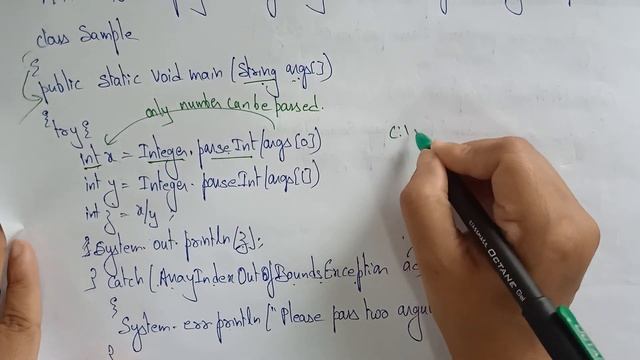 class Sample
{
public static void main (String args[])
only number can be passed.
{try{
int x = Integer. parseInt(args[0])
C:\
int y = Integer. parseInt(args[1])
int z = x/y ;
}System. out. println(z);
} catch (ArrayIndexOutOfBoundsException ac
{
System. err println("Please pass two argu
}
UNIMAX OCTANE Gel